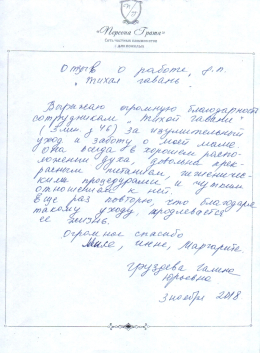 «Пересвет Грант»
Отзыв о работе
"Тихая гавань"
Выражаю огромную благодарность
сотрудникам "Тихой гавани"
за изумительный
уход и заботу о моей маме.
Она всегда в хорошем распо-
ложении духа, довольна прек-
расным питанием, гигиеничес-
кими процедурами и чутким
отношением к ней.
Еще раз повторю, что благодаря
такому уходу продлевается
ее жизнь.
Огромное спасибо
Инне, Маргарите.
Груздева Галина
Юрьевна
3 ноября 2018